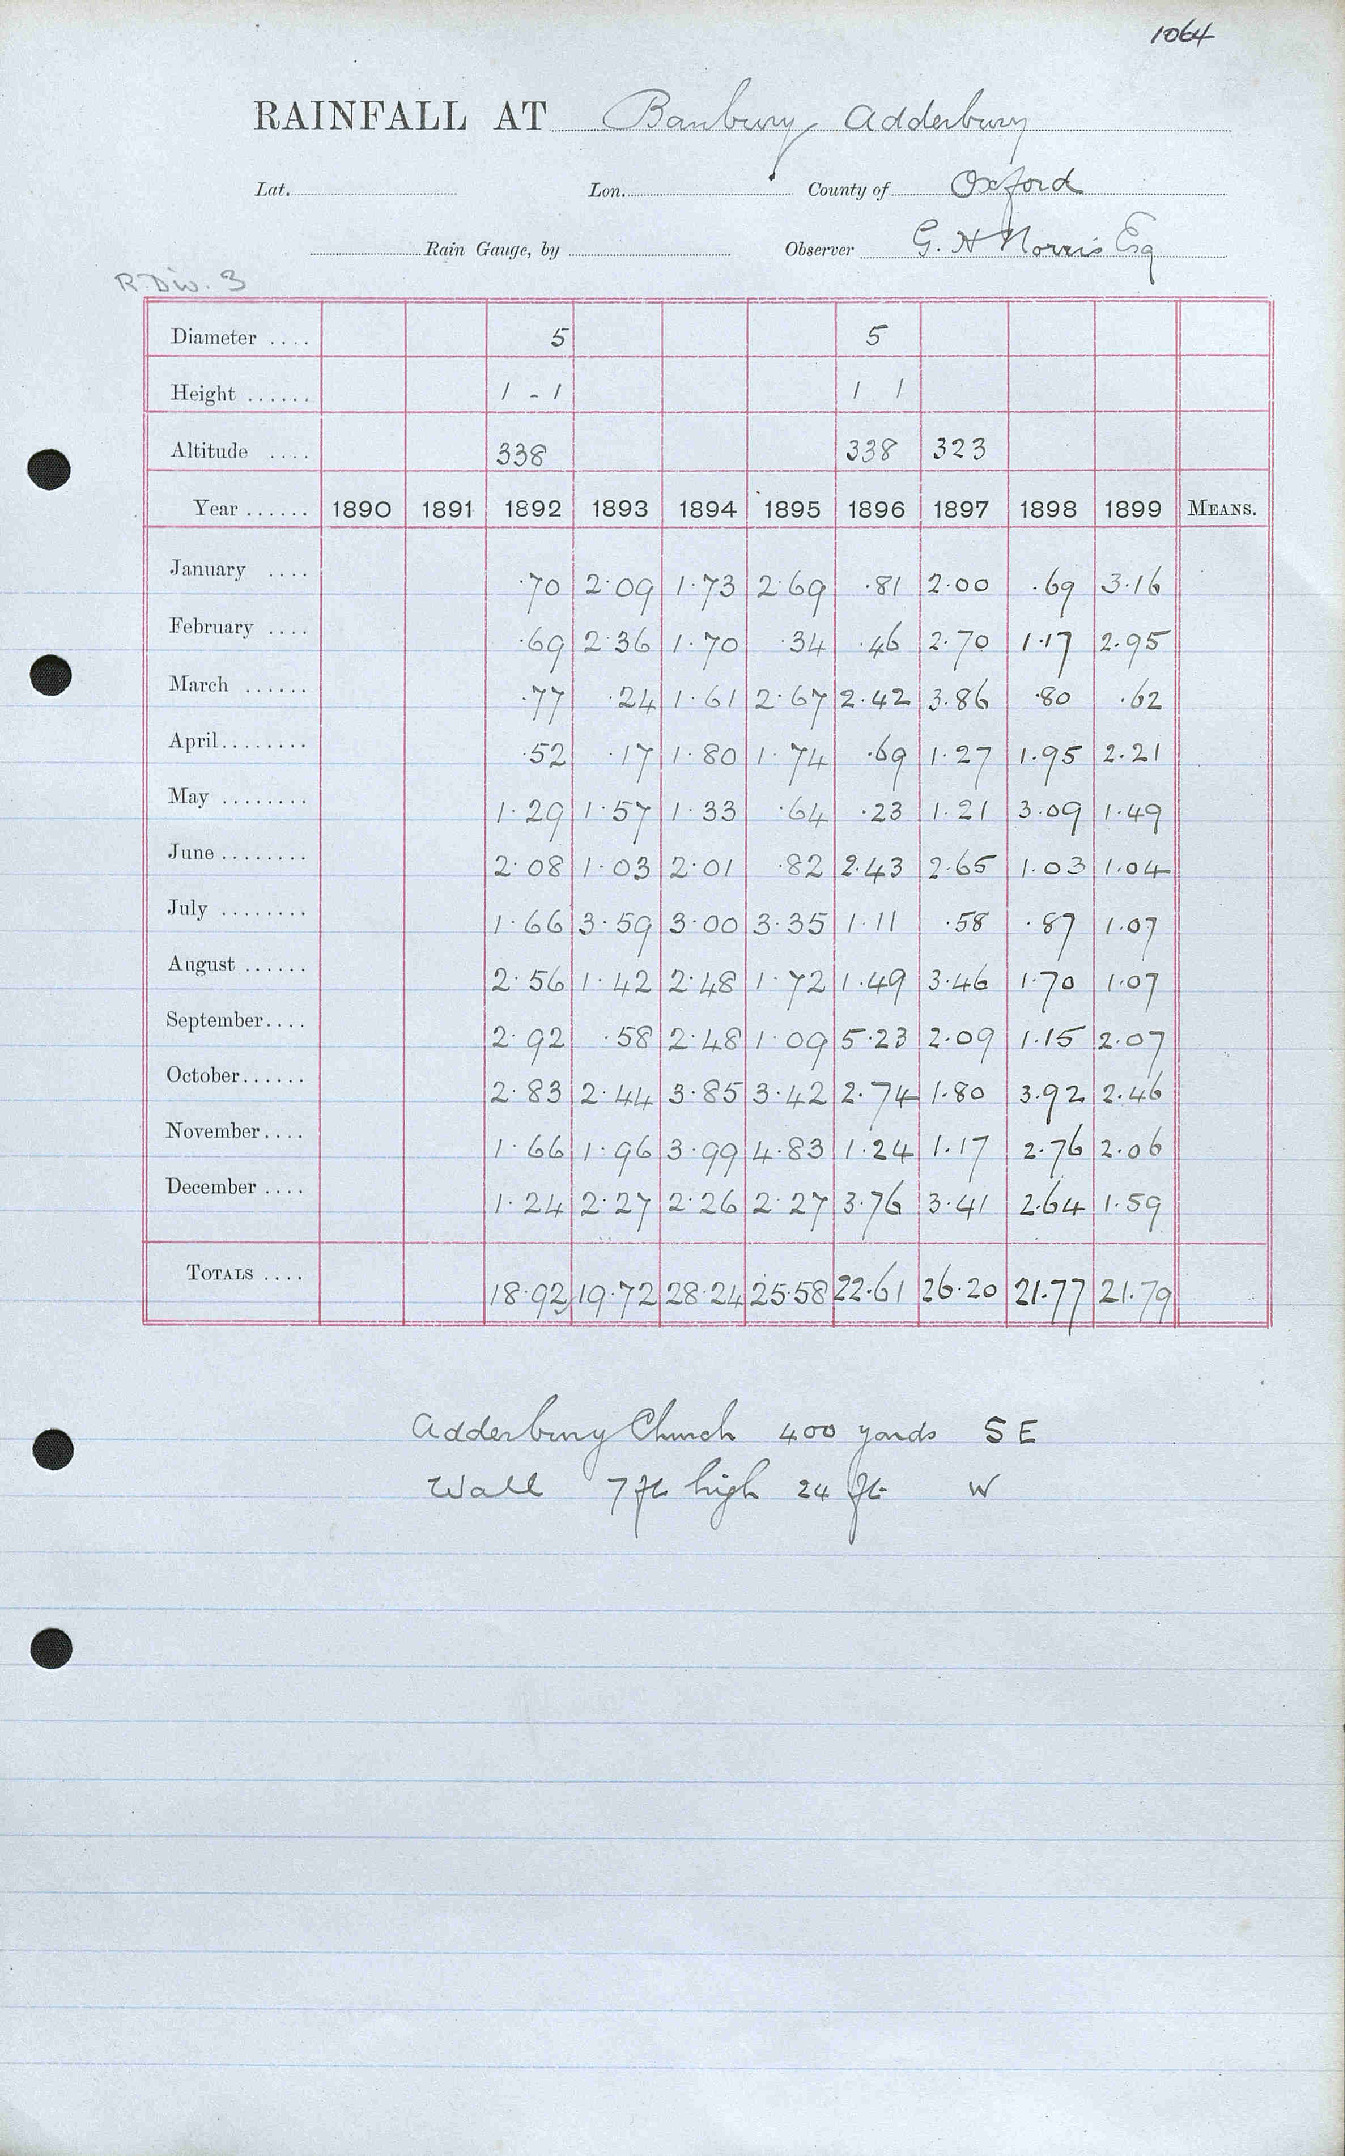 1064
RAINFALL AT Banbury, Adderbury
Lat. Lon. County of Oxford
Rain Gauge, by Observer G. H Norris Esq
R. Div. 3
Diameter .... 5 5
Height ...... 1 - 1 1 1
Altitude .... 338 338 323
Year ...... 1890 1891 1892 1893 1894 1895 1896 1897 1898 1899 MEANS.
January .... ·70 2·09 1·73 2·69 ·81 2·00 ·69 3·16
February .... ·69 2·36 1·70 ·34 ·46 2·70 1·17 2·95
March ...... ·77 ·24 1·61 2·67 2·42 3·86 ·80 ·62
April........ ·52 ·17 1·80 1·74 ·69 1·27 1·95 2·21
May ........ 1·29 1·57 1·33 ·64 ·23 1·21 3·09 1·49
June ........ 2·08 1·03 2·01 ·82 2·43 2·65 1·03 1·04
July ........ 1·66 3·59 3·00 3·35 1·11 ·58 ·87 1·07
August ...... 2·56 1·42 2·48 1·72 1·49 3·46 1·70 1·07
September.... 2·92 ·58 2·48 1·09 5·23 2·09 1·15 2·07
October...... 2·83 2·44 3·85 3·42 2·74 1·80 3·92 2·46
November.... 1·66 1·96 3·99 4·83 1·24 1·17 2·76 2·06
December .... 1·24 2·27 2·26 2·27 3·76 3·41 2·64 1·59
TOTALS .... 18·92 19·72 28·24 25·58 22·61 26·20 21·77 21·79
Adderbury Church 400 yards S E
Wall 7 ft high 24 ft W